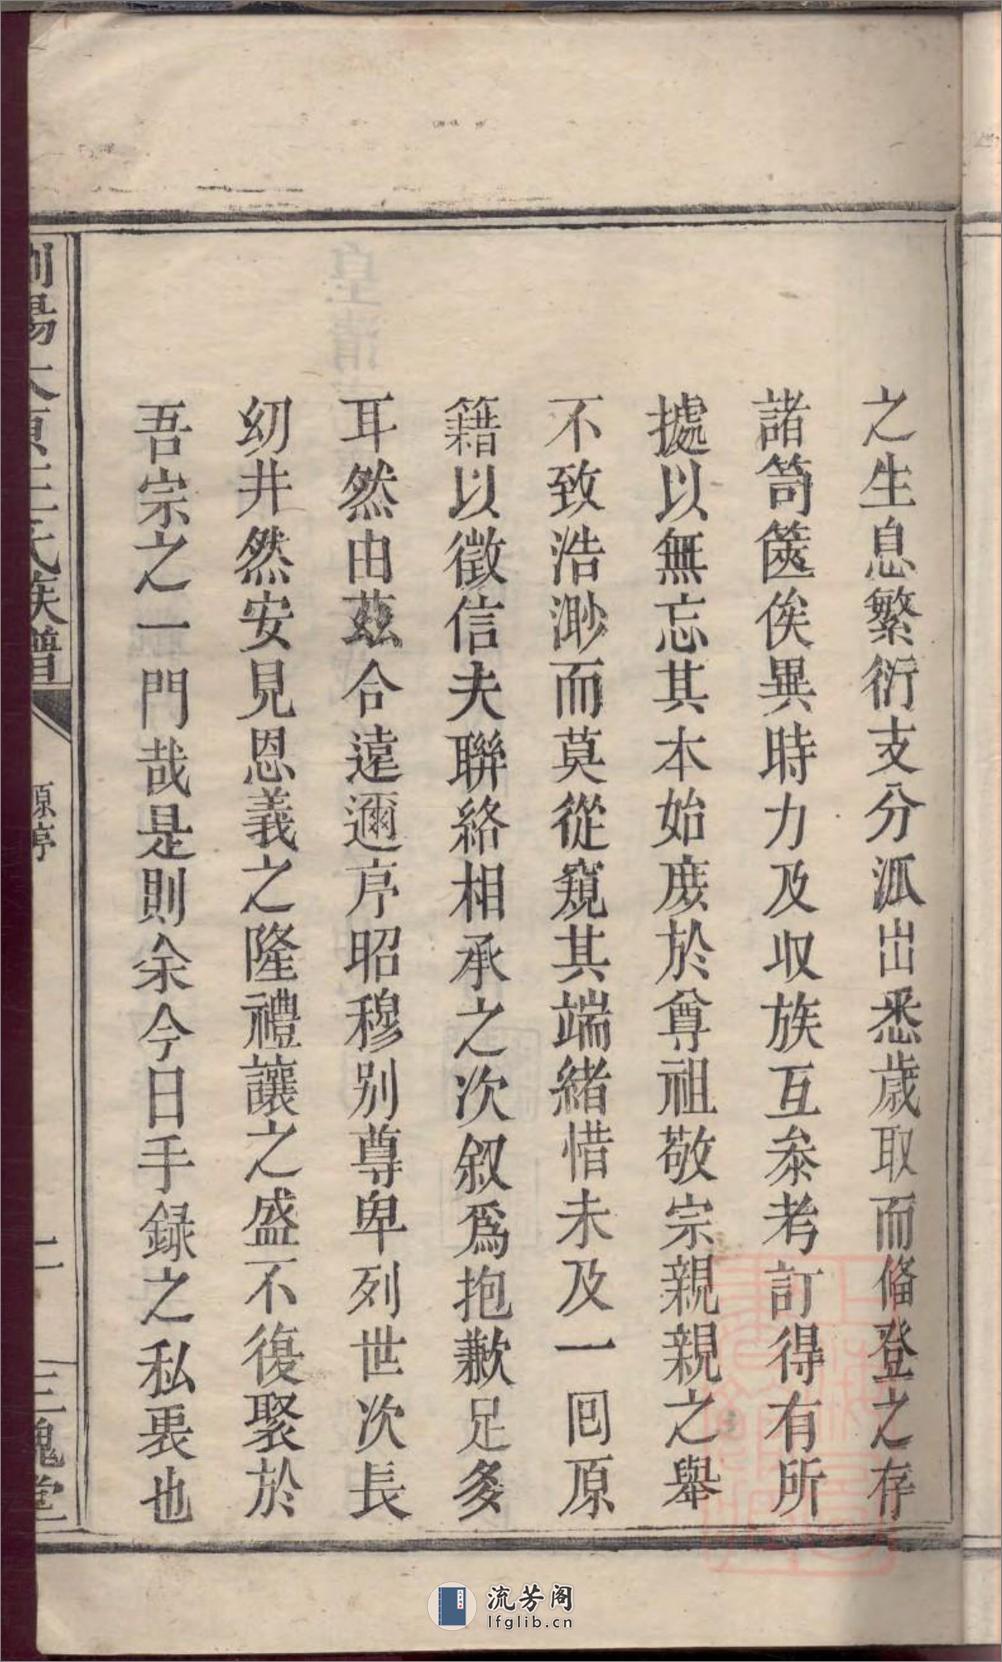 之生息繁衍支分派出悉歲取而俻登之存
諸笥篋俟異時力及収族互叅考訂得有所
據以無忘其本始庻於尊祖敬宗親親之舉
不致浩渺而莫從窺其端緒惜未及一囘原
籍以徵信夫聯絡相承之次叙爲抱歉足多
耳然由茲合遠邇序昭穆别尊卑列世次長
幼井然安見恩義之隆禮讓之盛不復聚於
吾宗之一門哉是則余今日手録之私裏也
瀏陽太原王氏族譜
源序
二
三槐堂
流芳阁
lfglib.cn